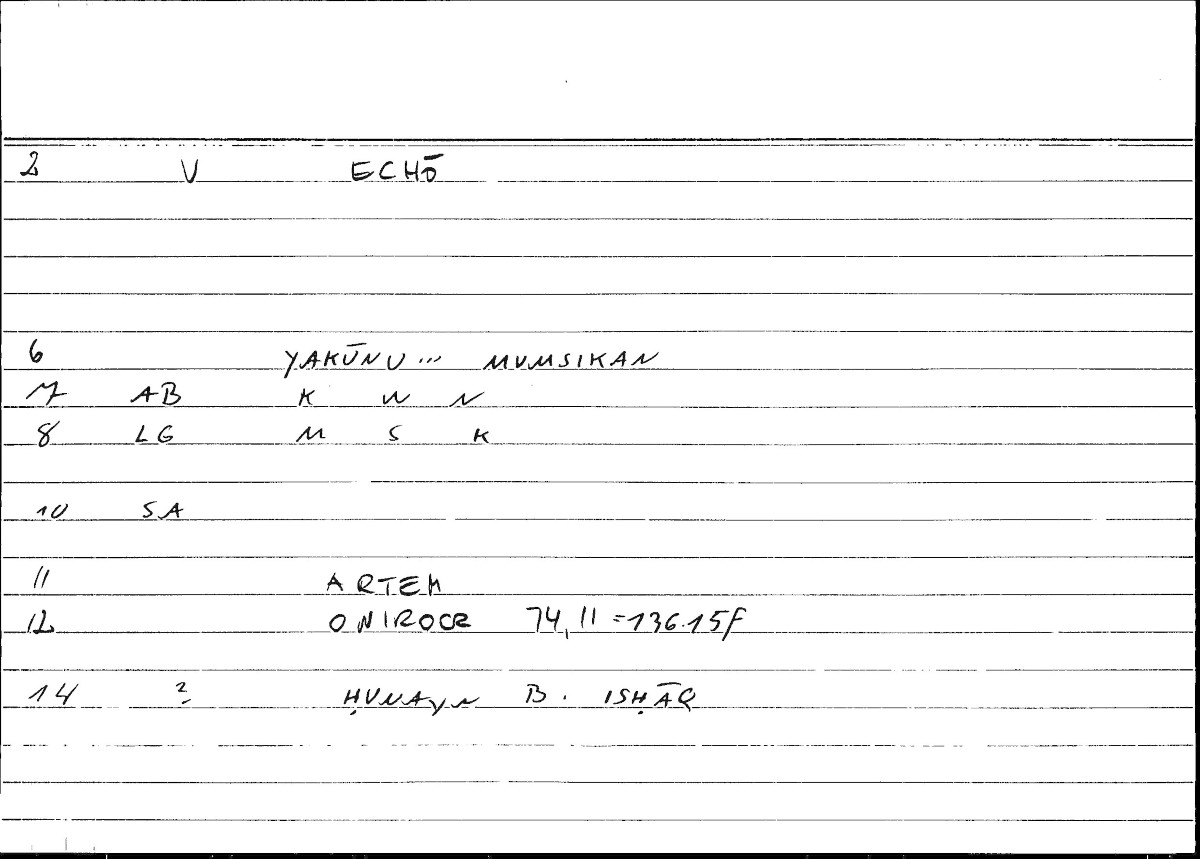 2 V ECHŌ
6 YAKŪNU... MUMSIKAN
7 AB K W N
8 LG M S K
10 SA
11 ARTEM
12 ONIROCR 74,11=136.15f
14 ? ḤUNAYN B. ISḤĀQ